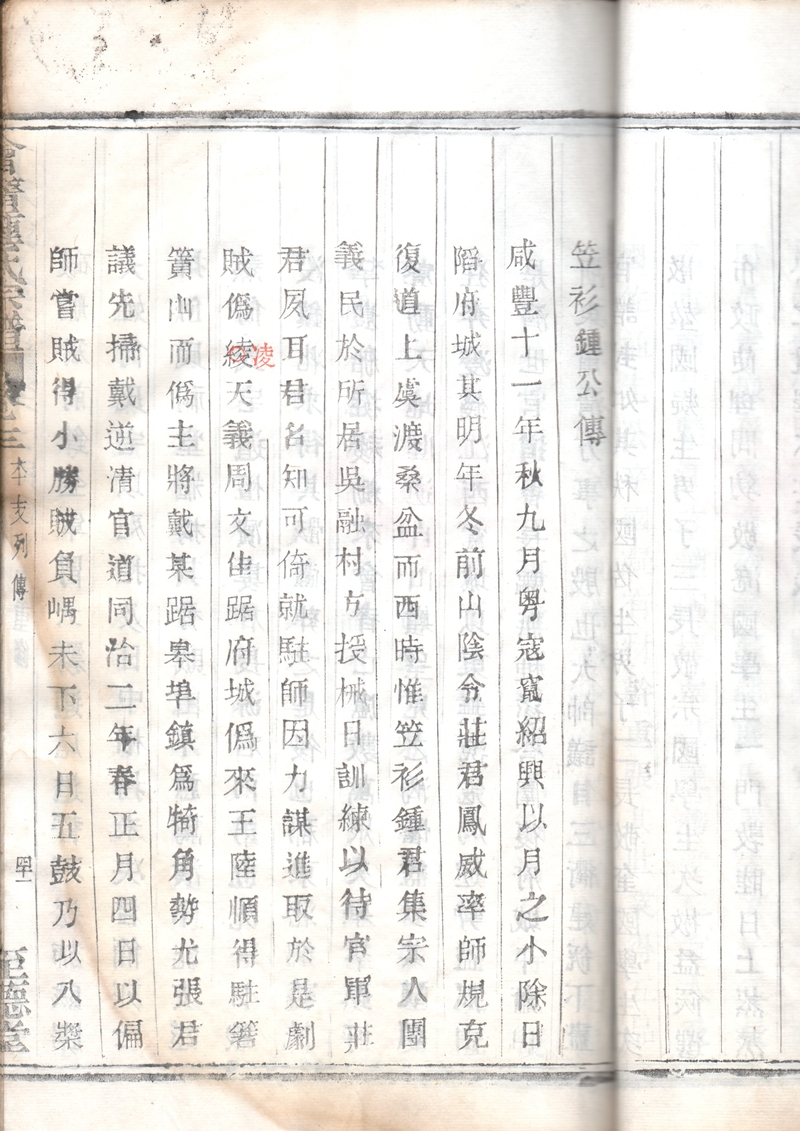 笠衫鍾公傳
咸豐十一年秋九月粵寇竄紹興以月之小除日
陷府城其明年冬前山陰令莊君鳳威率師規克
復道上虞渡桑盆而西時惟笠衫鍾君集宗人團
義民於所居吳融村方授械日訓練以待官軍莊
君夙耳君名知可倚就駐師因力謀進取於是劇
賊僞綾天義周文佳踞府城僞來王陸順得駐箬
淩
簣山而僞主將戴某踞皋埠鎮爲犄角勢尤張君
議先掃戴逆清官道同治二年春正月四日以偏
師嘗賊得小勝賊負嵎未下六日五鼓乃以八槳
宗譜
卷三
本支列傳
至德堂